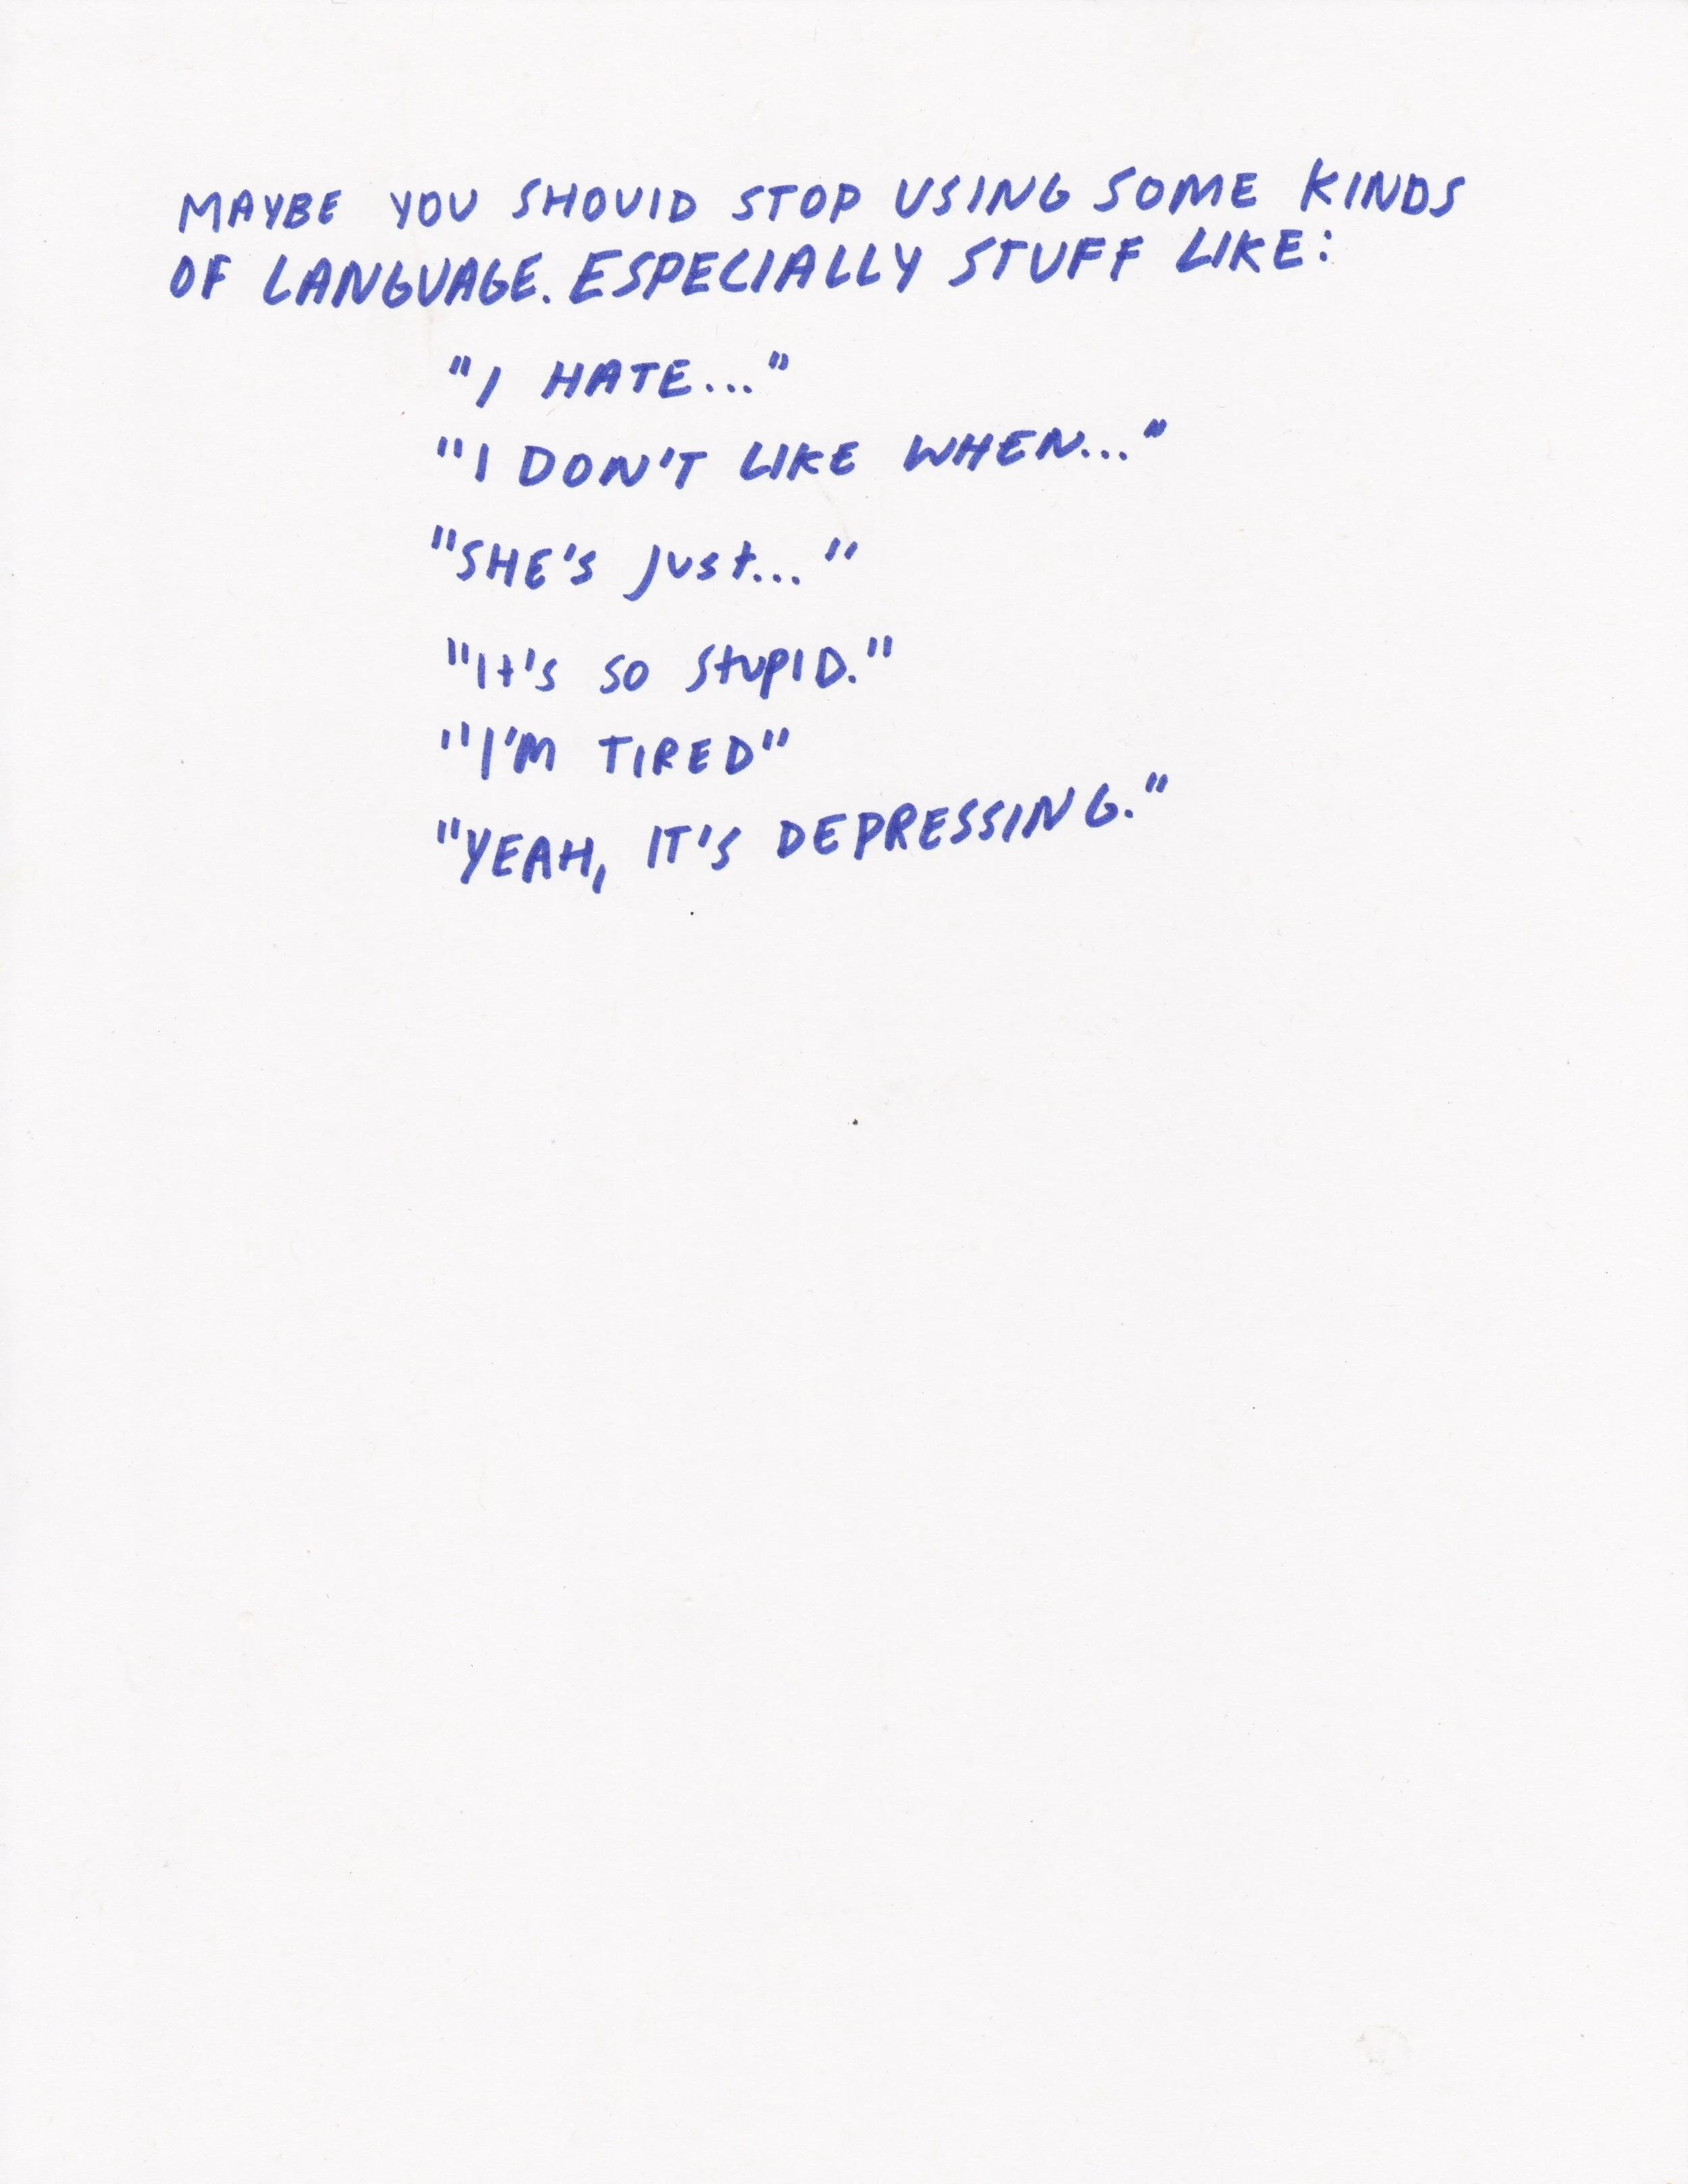 MAYBE YOU SHOULD STOP USING SOME KINDS
OF LANGUAGE. ESPECIALLY STUFF LIKE:
"I HATE..."
"I DON'T LIKE WHEN..."
"SHE'S JUST..."
"IT'S SO STUPID."
"I'M TIRED"
"YEAH, IT'S DEPRESSING."